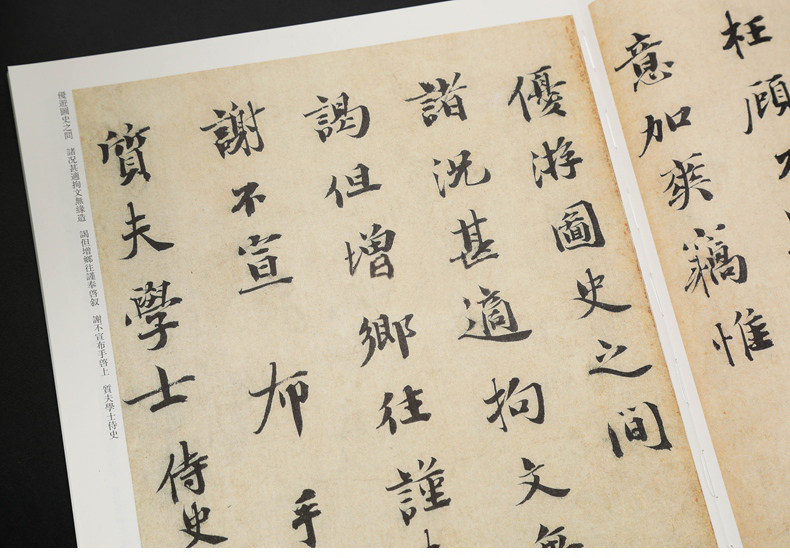 枉顧不
意加奭竊惟
優游圖史之間
諸況甚適拘文無
謁但增鄉往謹
謝不宣布手
質夫學士侍史
優遊圖史之間 諸況甚適拘文無緣造 謁但增鄉往謹奉啓叙 謝不宣布手啓上 質夫學士侍史